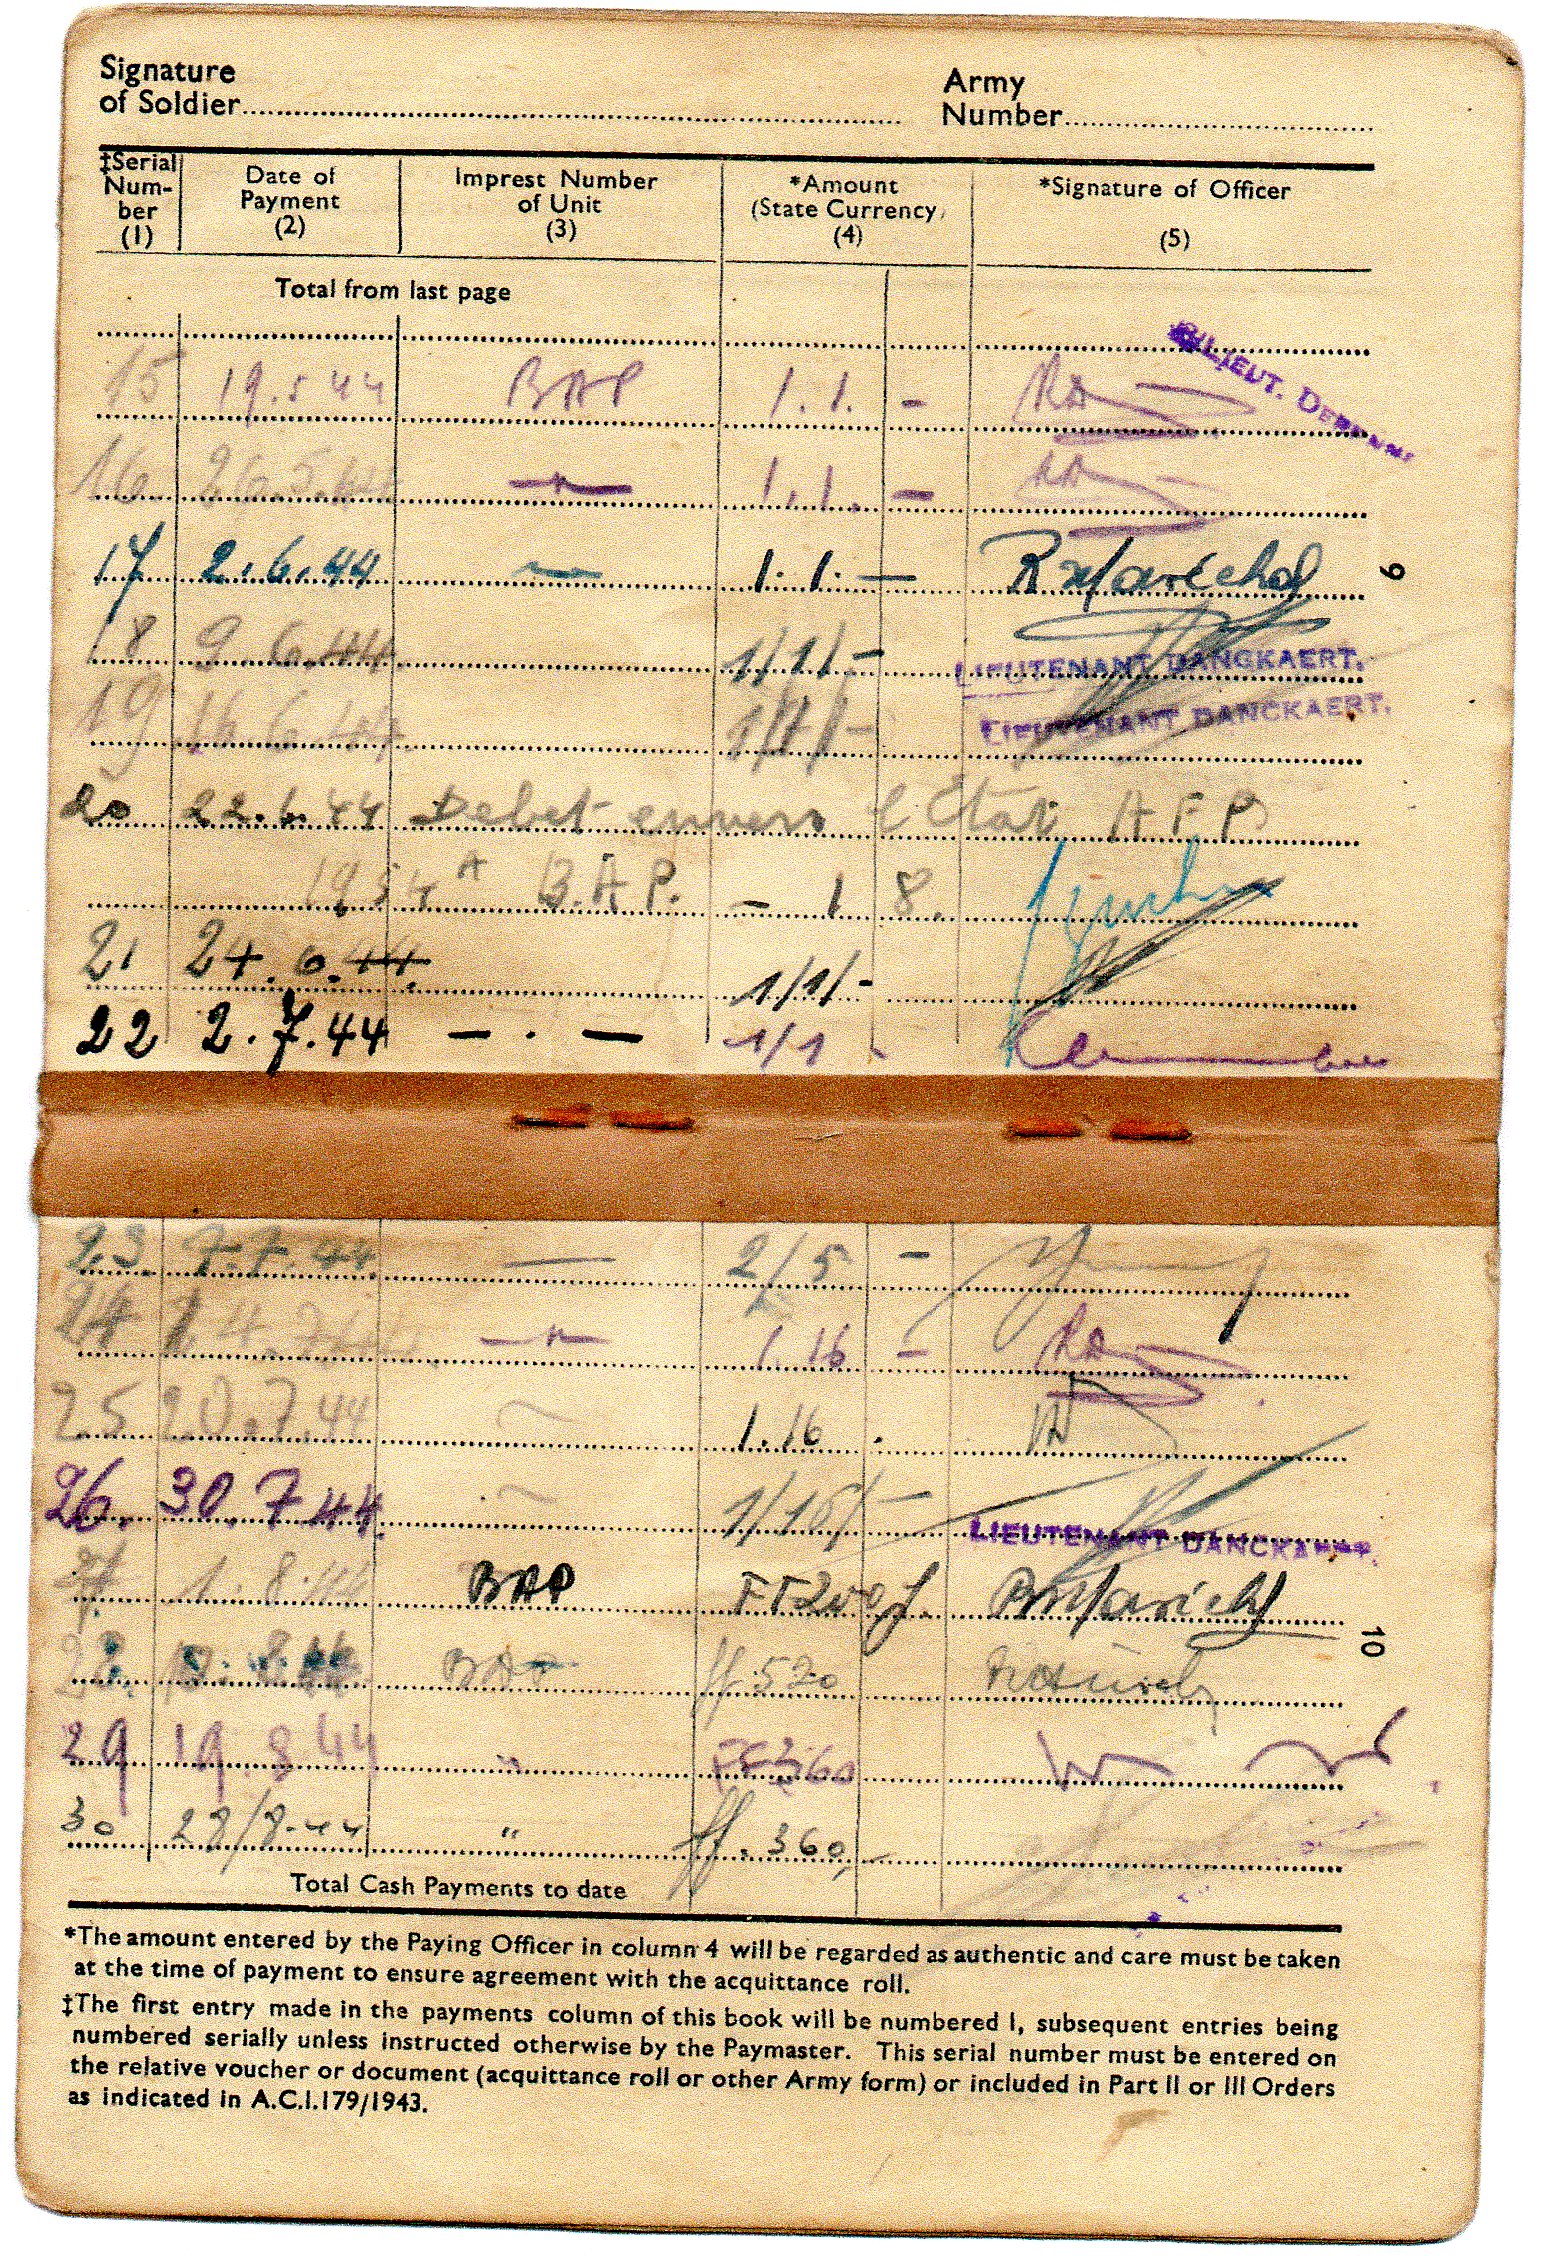 Signature
of Soldier
Army
Number
‡Serial Num- ber (1)
Date of Payment (2)
Imprest Number of Unit (3)
*Amount (State Currency) (4)
*Signature of Officer (5)
Total from last page
15 19.5.44 BAP 1.1. - LIEUT.
16 26.5.44 - " - 1.1. -
17 2.6.44 — 1.1. — R Maréchal
18 9.6.44 1/1/- LIEUTENANT DANCKAERT.
19 16.6.44 1/1/- LIEUTENANT DANCKAERT.
9
20 22.6.44 Debet envers l'Etat AFP
B.A.P. - 1 8.
21 24.6.44 1/1/-
22 2.7.44 - . - 1/1
23. 7.7.44 — 2/5 -
24 14.7.44 - " - 1.16 -
25 20.7.44 1.16 .
26. 30.7.44 1/16/- LIEUTENANT
27 1.8.44 BAP FF 200 f. R Maréchal
10
28. 8.44 BAP ff. 520
29 19.8.44 " FF 360
30 28/8-44 " ff. 360,-
Total Cash Payments to date
*The amount entered by the Paying Officer in column 4 will be regarded as authentic and care must be taken
at the time of payment to ensure agreement with the acquittance roll.
‡The first entry made in the payments column of this book will be numbered 1, subsequent entries being
numbered serially unless instructed otherwise by the Paymaster. This serial number must be entered on
the relative voucher or document (acquittance roll or other Army form) or included in Part II or III Orders
as indicated in A.C.I.179/1943.